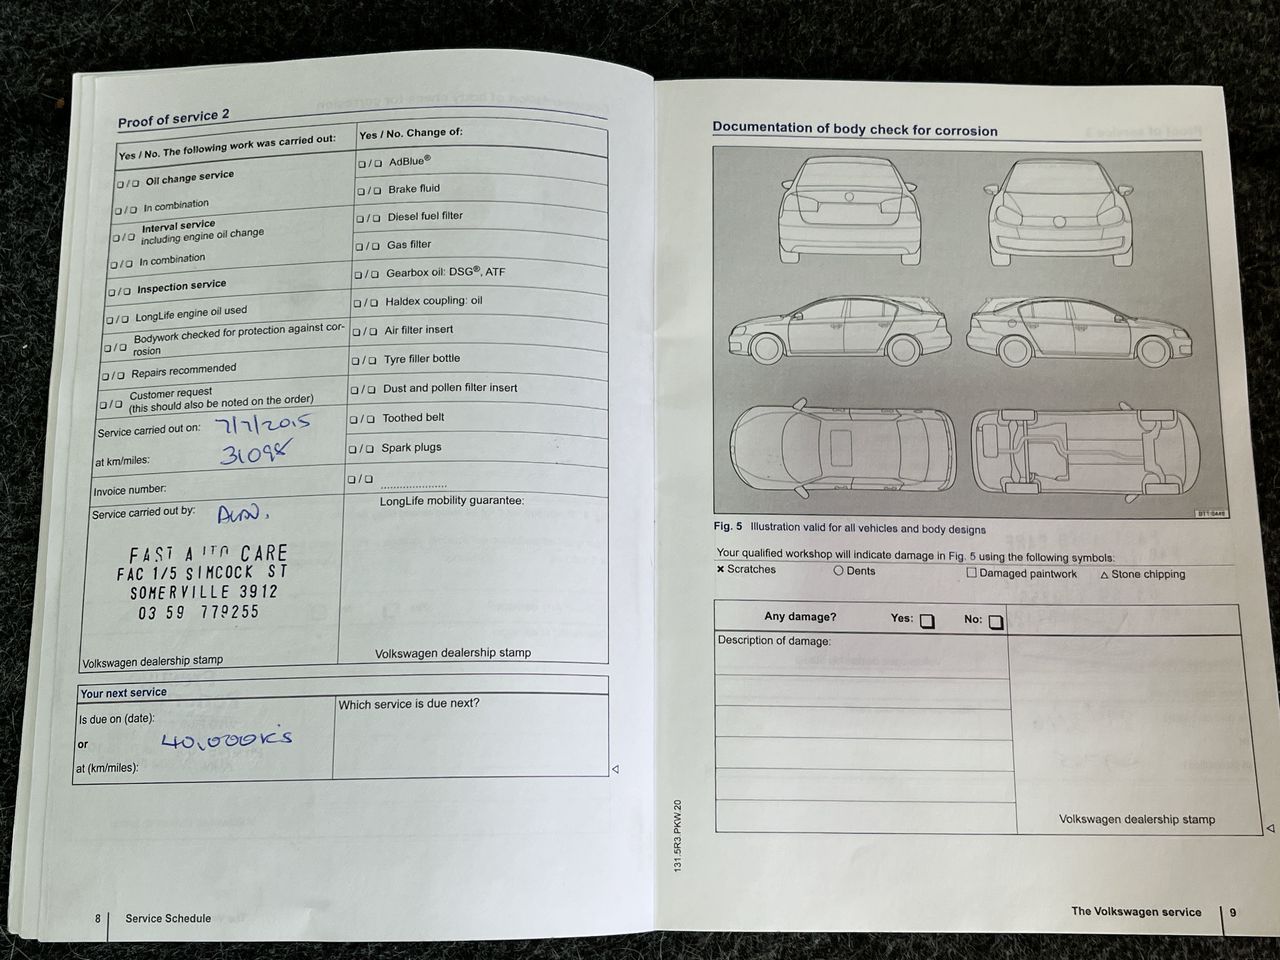 Proof of service 2
Yes / No. The following work was carried out:
❑ / ❑ Oil change service
❑ / ❑ In combination
❑ / ❑ Interval service
including engine oil change
❑ / ❑ In combination
❑ / ❑ Inspection service
❑ / ❑ LongLife engine oil used
❑ / ❑ Bodywork checked for protection against cor-
rosion
❑ / ❑ Repairs recommended
❑ / ❑ Customer request
(this should also be noted on the order)
Service carried out on: 7/7/2015
at km/miles: 31098
Invoice number:
Service carried out by:
FAST AUTO CARE
FAC 1/5 SIMCOCK ST
SOMERVILLE 3912
03 59 779255
Volkswagen dealership stamp
Yes / No. Change of:
❑ / ❑ AdBlue®
❑ / ❑ Brake fluid
❑ / ❑ Diesel fuel filter
❑ / ❑ Gas filter
❑ / ❑ Gearbox oil: DSG®, ATF
❑ / ❑ Haldex coupling: oil
❑ / ❑ Air filter insert
❑ / ❑ Tyre filler bottle
❑ / ❑ Dust and pollen filter insert
❑ / ❑ Toothed belt
❑ / ❑ Spark plugs
❑ / ❑ ....................
LongLife mobility guarantee:
Volkswagen dealership stamp
Your next service
Is due on (date):
or 40,000K's
at (km/miles):
Which service is due next?
8 Service Schedule
Documentation of body check for corrosion
Fig. 5 Illustration valid for all vehicles and body designs
Your qualified workshop will indicate damage in Fig. 5 using the following symbols:
× Scratches ○ Dents □ Damaged paintwork △ Stone chipping
Any damage? Yes: ❑ No: ❑
Description of damage:
Volkswagen dealership stamp
131.5R3.PKW.20
The Volkswagen service 9